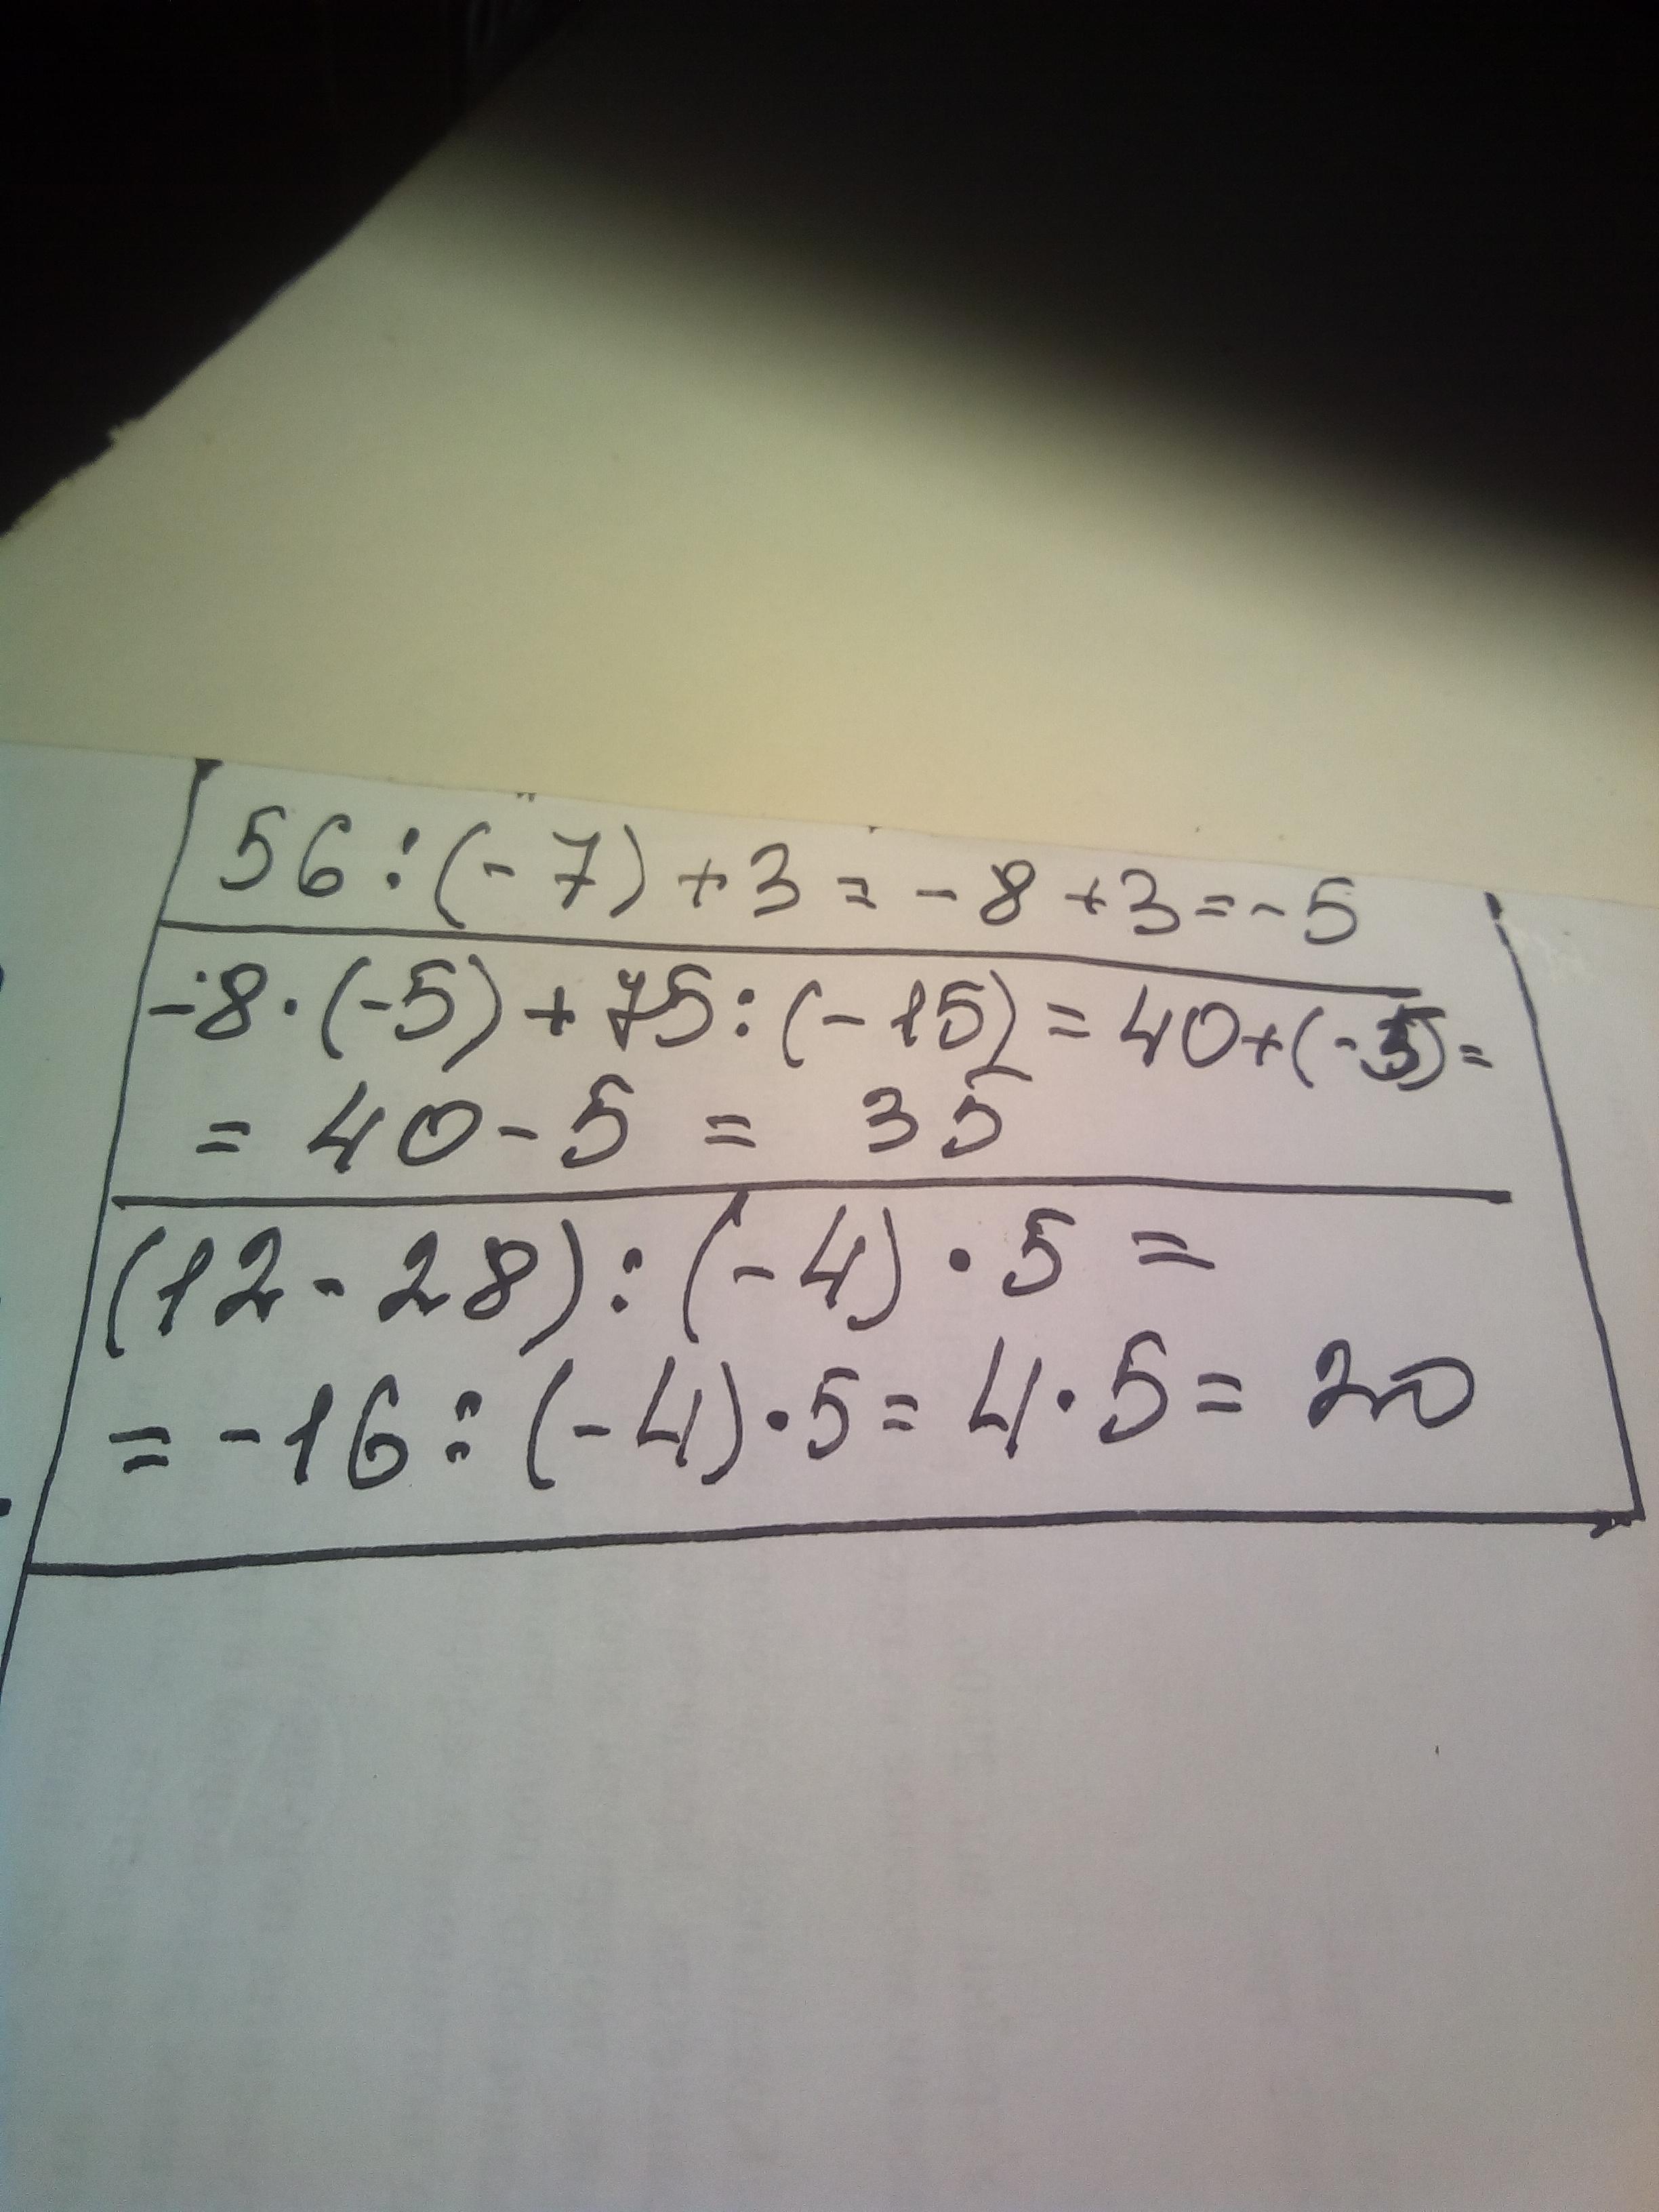 56:(-7)+3=-8+3=-5
-8·(-5)+75:(-15)=40+(-5)=
=40-5=35
(12-28):(-4)·5=
=-16:(-4)·5=4·5=20